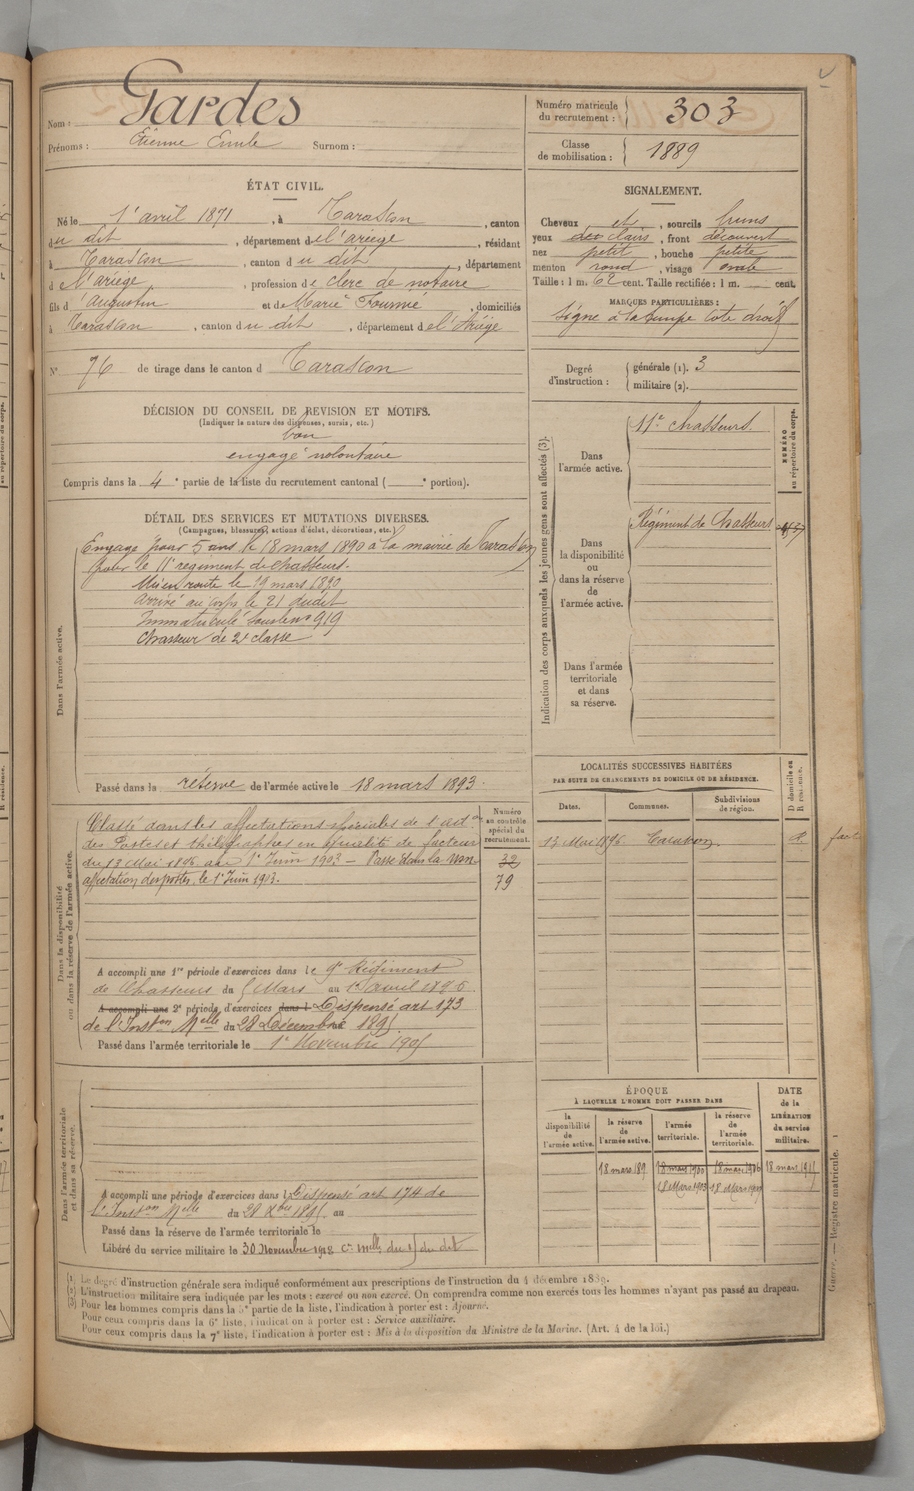 Nom : Gardes
Prénoms : Etienne Emile Surnom :
Numéro matricule du recrutement : 303
Classe de mobilisation : 1889
ÉTAT CIVIL.
Né le 1er avril 1871, à Tarascon, canton
du dit, département de l'ariège, résidant
à Tarascon, canton du dit, département
d e l'ariège, profession de clerc de notaire
fils d'Augustin et de Marie Fournié, domiciliés
à Tarascon, canton du dit, département de l'Ariège
N° 76 de tirage dans le canton d Tarascon
SIGNALEMENT.
Cheveux et, sourcils bruns
yeux clairs, front découvert
nez petit, bouche petite
menton rond, visage ovale
Taille : 1 m. 62 cent. Taille rectifiée : 1 m. cent.
MARQUES PARTICULIÈRES :
Signe à la tempe côté droit
Degré d'instruction : générale (1). 3
militaire (2).
DÉCISION DU CONSEIL DE REVISION ET MOTIFS.
(Indiquer la nature des dispenses, sursis, etc.)
bon
engagé volontaire
Compris dans la 4e partie de la liste du recrutement cantonal ( e portion).
DÉTAIL DES SERVICES ET MUTATIONS DIVERSES.
(Campagnes, blessures, actions d'éclat, décorations, etc.)
Dans l'armée active.
Engagé pour 5 ans le 18 mars 1890 à la mairie de Tarascon
pour le 11e regiment de chasseurs.
Mis en route le 19 mars 1890
arrivé au corps le 21 dudit
Immatriculé sous le no 919
Chasseur de 2e classe
Passé dans la réserve de l'armée active le 18 mars 1893.
Indication des corps auxquels les jeunes gens sont affectés (3).
NUMÉRO au répertoire du corps.
Dans l'armée active.
11e chasseurs.
Dans la disponibilité ou dans la réserve de l'armée active.
Régiment de Chasseurs
Dans l'armée territoriale et dans sa réserve.
LOCALITÉS SUCCESSIVES HABITÉES
PAR SUITE DE CHANGEMENTS DE DOMICILE OU DE RÉSIDENCE.
Dates. Communes. Subdivisions de région. D domicile ou R résidence.
13 Mai 1896 Tarascon R.
Dans la disponibilité ou dans la réserve de l'armée active.
Numéro au contrôle spécial du recrutement.
32
79
Classé dans les affectations spéciales de l'adon
des Postes et télégraphes en qualité de facteur
du 13 Mai 1896 au 1er Juin 1903 - Passé dans la non
affectation des postes, le 1er Juin 1903.
A accompli une 1re période d'exercices dans le 9e Régiment
de Chasseurs du Mars au avril 1895
A accompli une 2e période d'exercices dans l Dispensé art 173
de l'Inston Melle du 28 Décembre 1895
Passé dans l'armée territoriale le 1er Novembre 190
Dans l'armée territoriale et dans sa réserve.
A accompli une période d'exercices dans l Dispensé art 174 de
l'Inston Melle du 28 Xbre 1895 au
Passé dans la réserve de l'armée territoriale le
Libéré du service militaire le 30 Novembre 1918 du dit
ÉPOQUE
À LAQUELLE L'HOMME DOIT PASSER DANS
DATE de la LIBÉRATION du service militaire.
la disponibilité de l'armée active. la réserve de l'armée active. l'armée territoriale. la réserve de l'armée territoriale.
18 mars 189 18 mars 1900 18 mars 1906 18 mars 191
18 Mars 1903 18 Mars 1909
(1) Le degré d'instruction générale sera indiqué conformément aux prescriptions de l'instruction du 4 décembre 1889.
(2) L'instruction militaire sera indiquée par les mots : exercé ou non exercé. On comprendra comme non exercés tous les hommes n'ayant pas passé au drapeau.
(3) Pour les hommes compris dans la 5e partie de la liste, l'indication à porter est : Ajourné.
Pour ceux compris dans la 6e liste, l'indication à porter est : Service auxiliaire.
Pour ceux compris dans la 7e liste, l'indication à porter est : Mis à la disposition du Ministre de la Marine. (Art. 4 de la loi.)
Guerre. — Registre matricule.